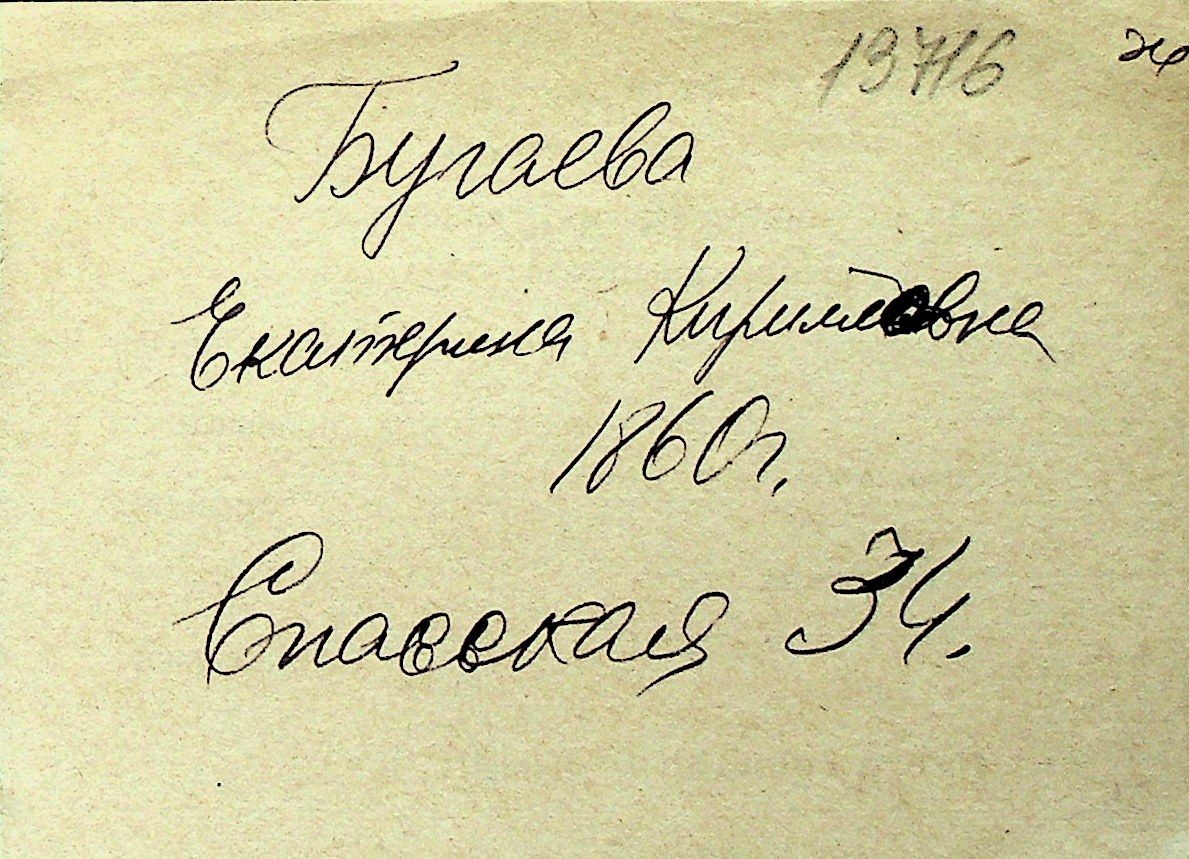 13716 ж
Бугаева
Екатерина Кириловна
1860г.
Спасская 34.